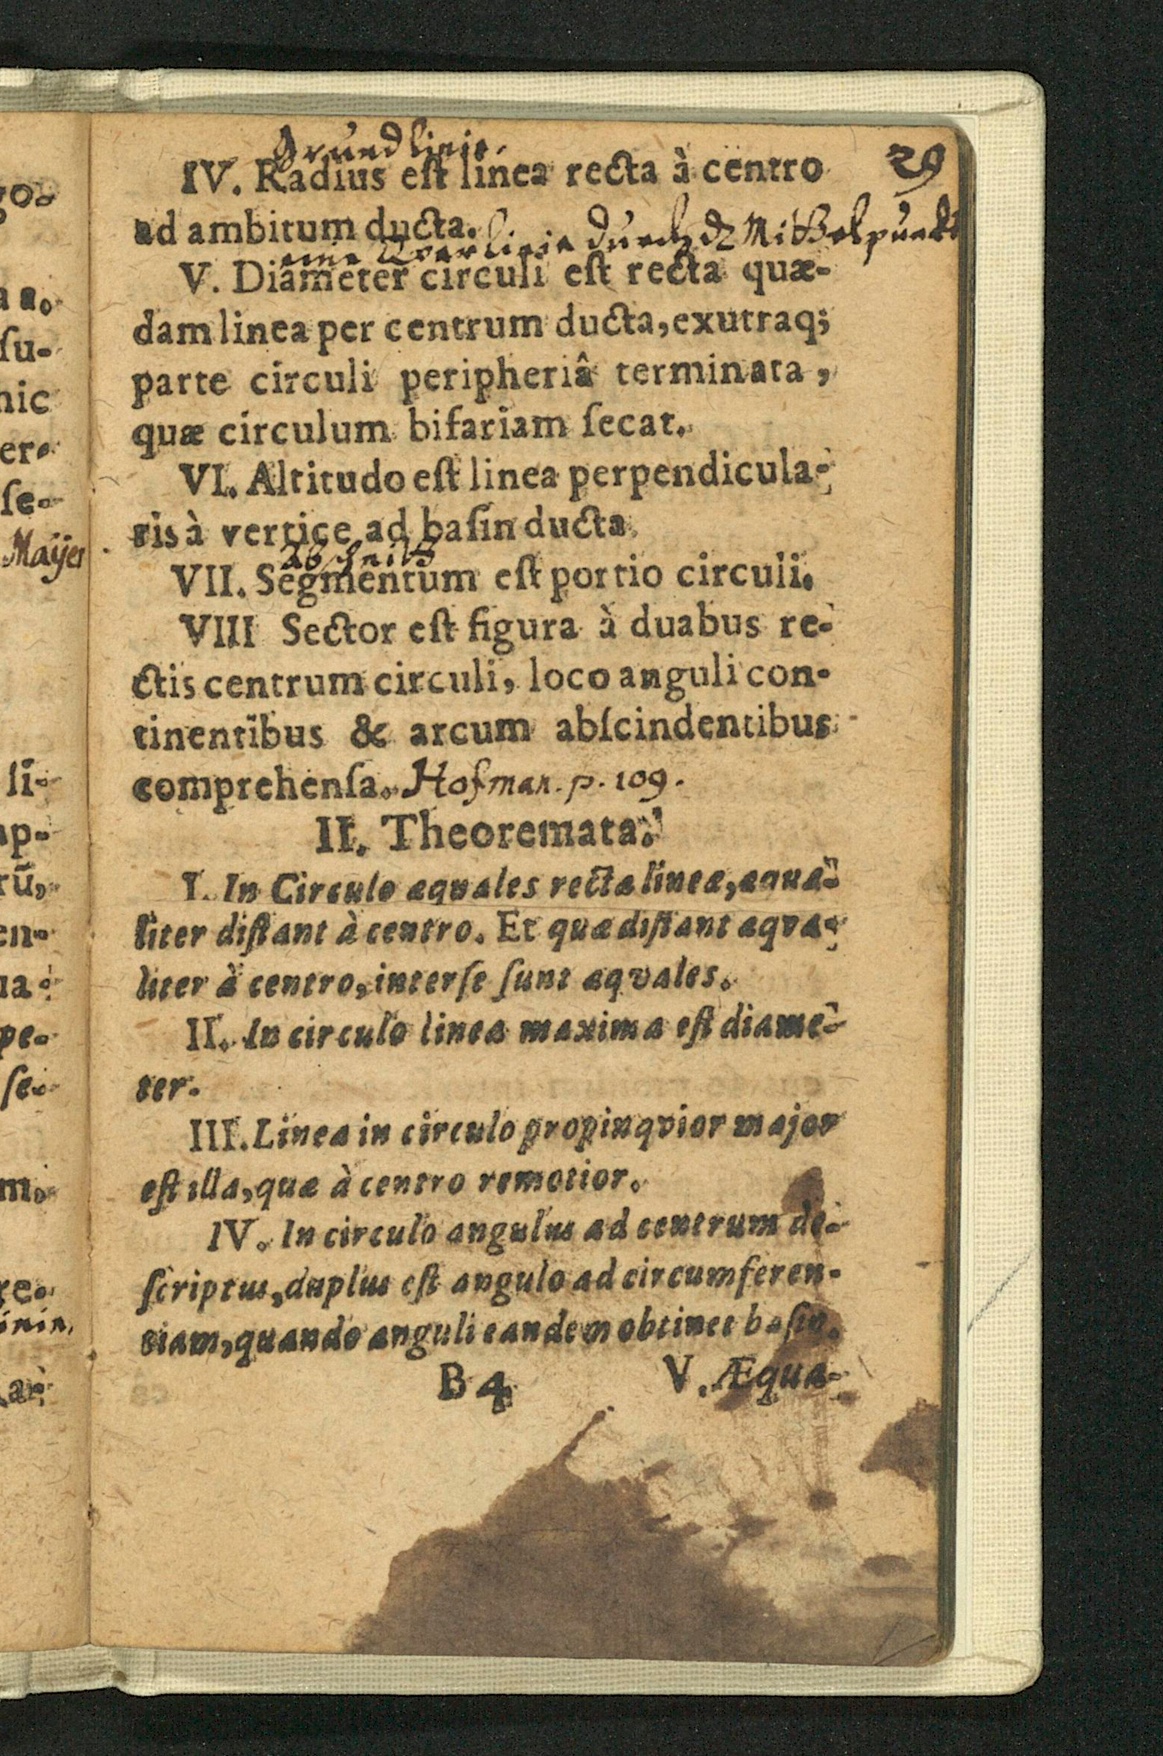 go-
a a.
ſu-
hic
er-
ſe-
Maijer
li-
ap-
rũ,
en-
ua-
pe-
ſe-
m.
re-
ar-
29
Grundlinie.
IV. Radius eſt linea recta à centro
ad ambitum ducta.
eine Querlinie durch dz Mittelpunkt
V. Diameter circuli eſt recta quæ-
dam linea per centrum ducta, ex utraq;
parte circuli peripheriâ terminata,
quæ circulum bifariam ſecat.
VI. Altitudo eſt linea perpendicula-
ris à vertice ad baſin ducta.
Abschnitt
VII. Segmentum eſt portio circuli.
VIII Sector eſt figura à duabus re-
ctis centrum circuli, loco anguli con-
tinentibus & arcum abſcindentibus
comprehenſa. Hofman. p. 109.
II. Theoremata.
I. In Circulo æquales rectæ lineæ, æqua-
liter diſtant à centro. Et quæ diſtant æqva-
liter à centro, inter ſe ſunt æqvales.
II. In circulo linea maxima eſt diame-
ter.
III. Linea in circulo propinqvior major
eſt illa, quæ à centro remotior.
IV. In circulo angulus ad centrum de-
ſcriptus, duplus eſt angulo ad circumferen-
tiam, quando anguli eandem obtinet baſin.
B 4 V. Æqua-